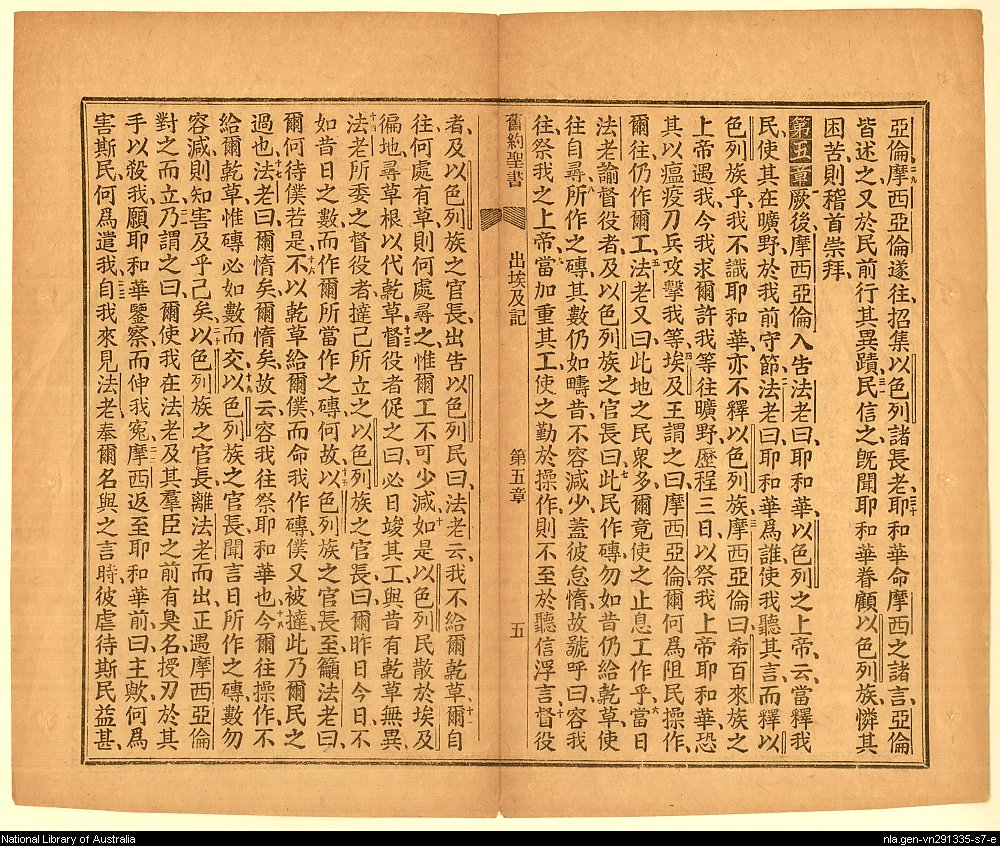 亞倫摩西亞倫遂往招集以色列諸長老耶和華命摩西之諸言亞倫
二九 三十
皆述之又於民前行其異蹟民信之旣聞耶和華眷顧以色列族憐其
三一
困苦則稽首崇拜
第五章厥後摩西亞倫入吿法老曰耶和華以色列之上帝云當釋我
一
民使其在曠野於我前守節法老曰耶和華爲誰使我聽其言而釋以
二
色列族乎我不識耶和華亦不釋以色列族摩西亞倫曰希百來族之
三
上帝遇我今我求爾許我等往曠野歷程三日以祭我上帝耶和華恐
其以瘟疫刀兵攻擊我等埃及王謂之曰摩西亞倫爾何爲阻民操作
四
爾往仍作爾工法老又曰此地之民衆多爾竟使之止息工作乎當日
五 六
法老諭督役者及以色列族之官長曰此民作磚勿如昔仍給乾草使
七
往自尋所作之磚其數仍如疇昔不容減少蓋彼怠惰故號呼曰容我
八
往祭我之上帝當加重其工使之勤於操作則不至於聽信浮言督役
九 十
舊約聖書
出埃及記
第五章
五
者及以色列族之官長出吿以色列民曰法老云我不給爾乾草爾自
十一
往何處有草則何處尋之惟爾工不可少減如是以色列民散於埃及
十二
徧地尋草根以代乾草督役者促之曰必日竣其工與昔有乾草無異
十三
法老所委之督役者撻己所立之以色列族之官長曰爾昨日今日不
十四
如昔日之數而作爾所當作之磚何故以色列族之官長至籲法老曰
十五
爾何待僕若是不以乾草給爾僕而命我作磚僕又被撻此乃爾民之
十六
過也法老曰爾惰矣爾惰矣故云容我往祭耶和華也今爾往操作不
十七 十八
給爾乾草惟磚必如數而交以色列族之官長聞言日所作之磚數勿
十九
容減則知害及乎己矣以色列族之官長離法老而出正遇摩西亞倫
二十
對之而立乃謂之曰爾使我在法老及其羣臣之前有臭名授刃於其
二一
手以殺我願耶和華鑒察而伸我寃摩西返至耶和華前曰主歟何爲
二二
害斯民何爲遣我自我來見法老奉爾名與之言時彼虐待斯民益甚
二三
National Library of Australia
nla.gen-vn291335-s7-e